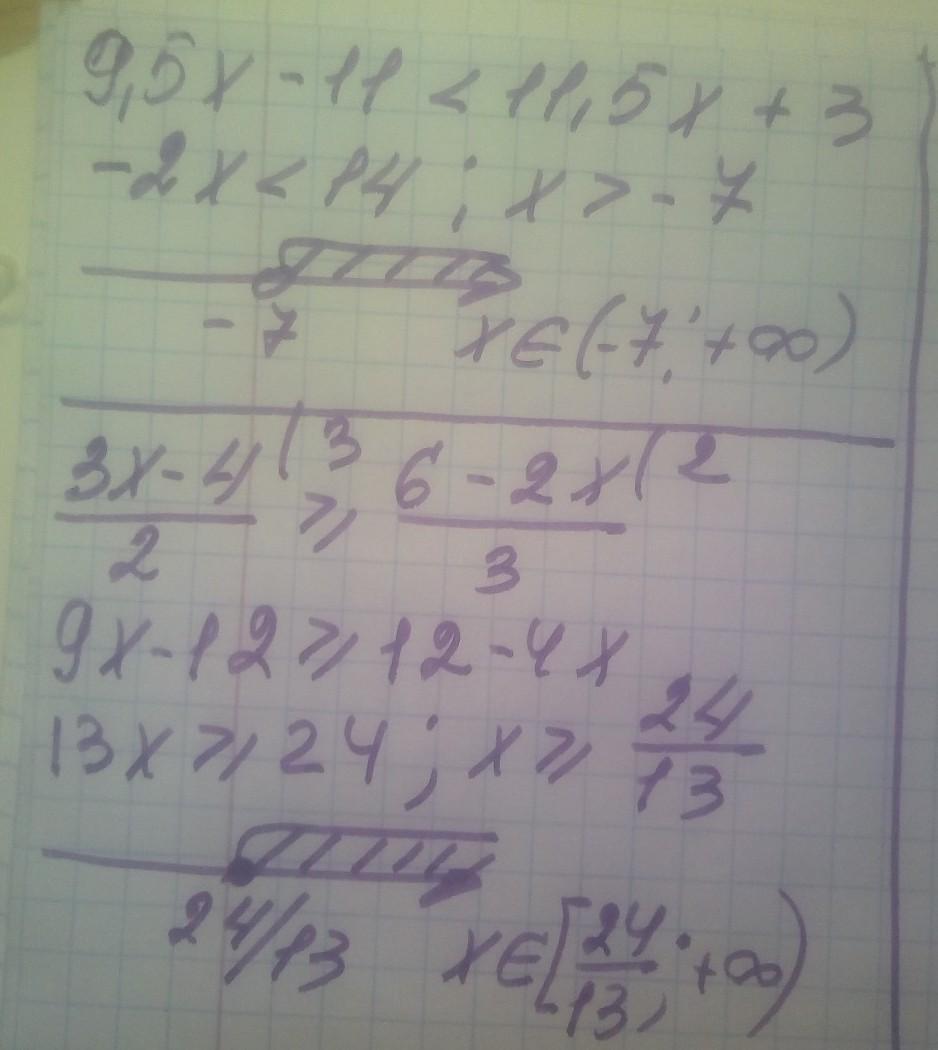 9,5x - 11 < 11,5x + 3
-2x < 14 ; x > - 7
-7 x ∈ (-7; +∞)
3x - 4 (3 / 2 ≥ 6 - 2x (2 / 3
9x - 12 ≥ 12 - 4x
13x ≥ 24 ; x ≥ 24/13
24/13 x ∈ [24/13; +∞)